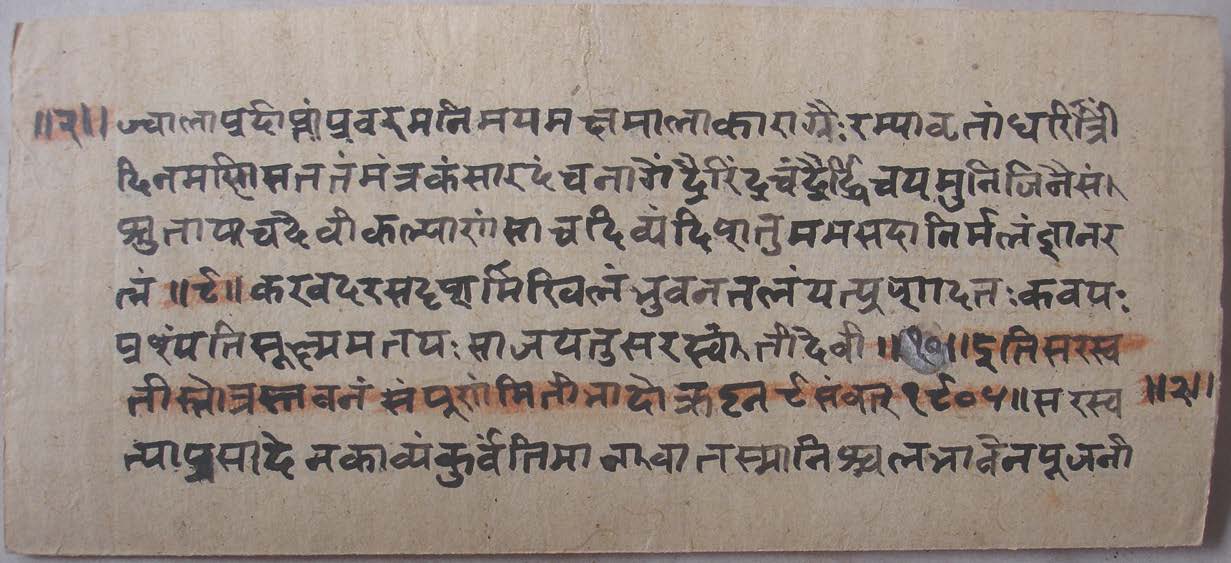 ॥२॥ ज्वालापुर्दाप्नां पुवरमनिमयमक्षमालाकारागैः रम्यावृतां धरित्रिं
दिनमसि सततं मंत्रकं सारदं च नागेंद्रैरिंद्रुचंद्रैर्द्रि चयमुनिजिनैसं।
श्रुताषा च देवी कल्यारां सा च दिव्यं दिषातु मम सदा निर्मलं ज्ञानर
त्नं ॥९॥ करवदरसदृषमखिलं भुवनतलं यत्प्रषादतः कवयः
पश्यंति सूक्ष्ममतयः सा जयतु सरस्वती देवी ॥१०॥ इति सरस्व
तीस्तोत्रस्तवनं संपूर्णं मिती भादो ९ संवत् १९०५॥ सरस्व ॥२॥
त्या प्रसादेन काव्यं कुर्वंति मानवा तस्मा निश्चलभावेन पूजनी